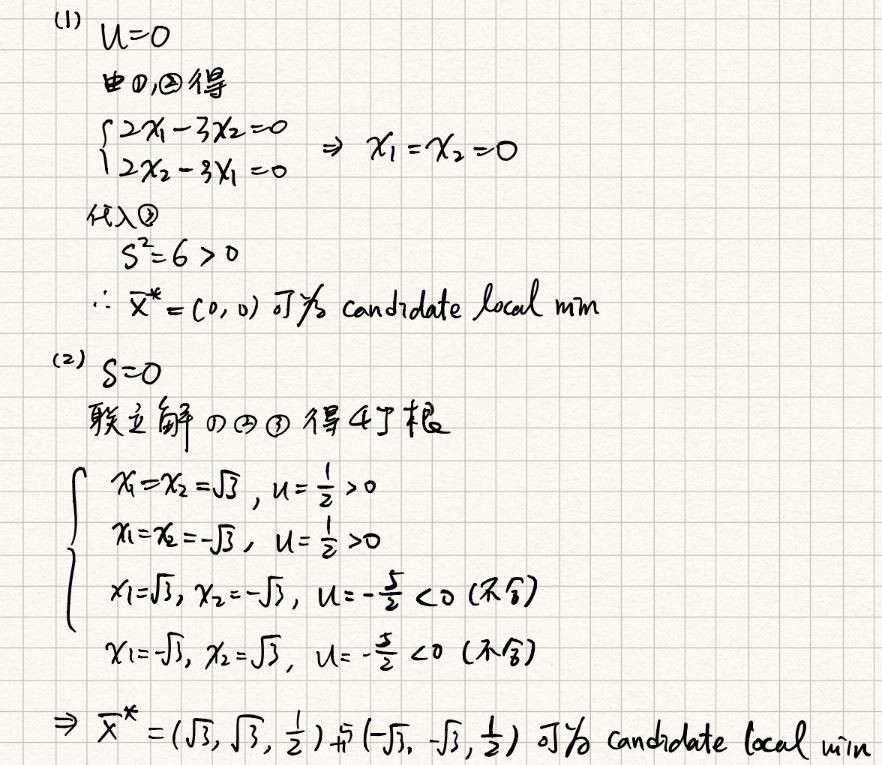 (1) u=0
由①,②得
{ 2x₁-3x₂=0
2x₂-3x₁=0 ⇒ x₁=x₂=0
代入③
S²=6>0
∴ x̄*=(0,0)可为 candidate local min
(2) S=0
联立解①②③得4个根
{ x₁=x₂=√3, u=1/2>0
x₁=x₂=-√3, u=1/2>0
x₁=√3, x₂=-√3, u=-5/2<0 (不合)
x₁=-√3, x₂=√3, u=-5/2<0 (不合)
⇒ x̄*=(√3,√3,1/2)和(-√3,-√3,1/2)可为 candidate local min